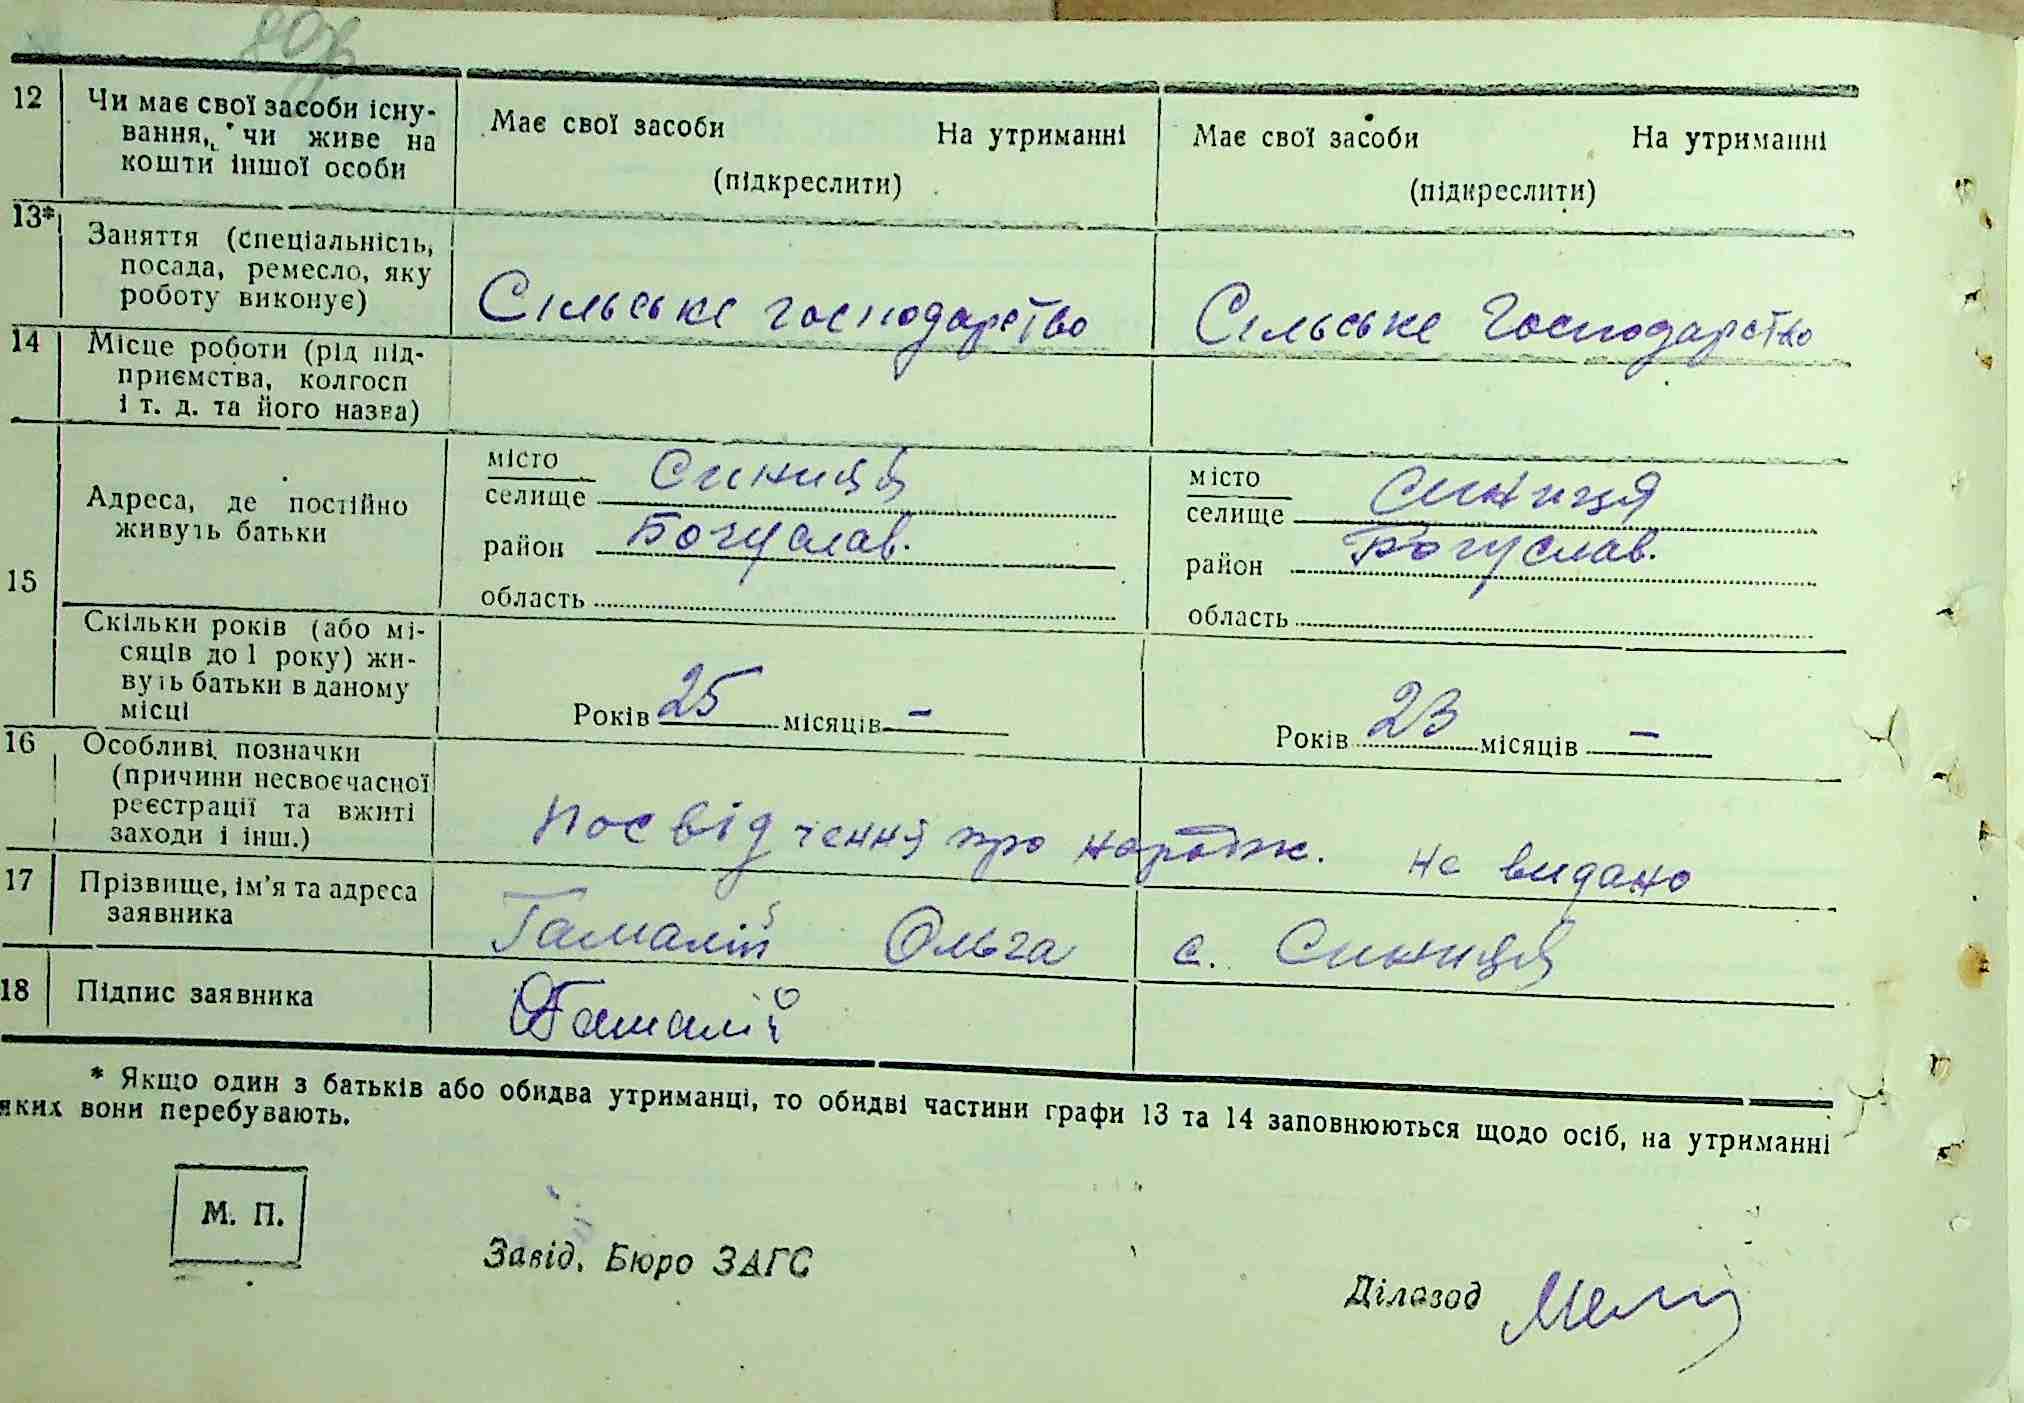 12 Чи має свої засоби існу-
вання, чи живе на
кошти іншої особи
Має свої засоби На утриманні
(підкреслити)
Має свої засоби На утриманні
(підкреслити)
13* Заняття (спеціальність,
посада, ремесло, яку
роботу виконує)
Сільське господарство
Сільське господарство
14 Місце роботи (рід під-
приємства, колгосп
і т. д. та його назва)
15 Адреса, де постійно
живуть батьки
місто
селище Синиця
район Богуслав.
область
місто
селище Синиця
район Богуслав.
область
Скільки років (або мі-
сяців до 1 року) жи-
вуть батьки в даному
місці
Років 25 місяців –
Років 23 місяців –
16 Особливі позначки
(причини несвоєчасної
реєстрації та вжиті
заходи і інш.)
Посвідчення про народж. не видано
17 Прізвище, ім'я та адреса
заявника
Гамалій Ольга с. Синиця
18 Підпис заявника
ОГамалій
* Якщо один з батьків або обидва утриманці, то обидві частини графи 13 та 14 заповнюються щодо осіб, на утриманні
яких вони перебувають.
М. П.
Завід. Бюро ЗАГС
Діловод